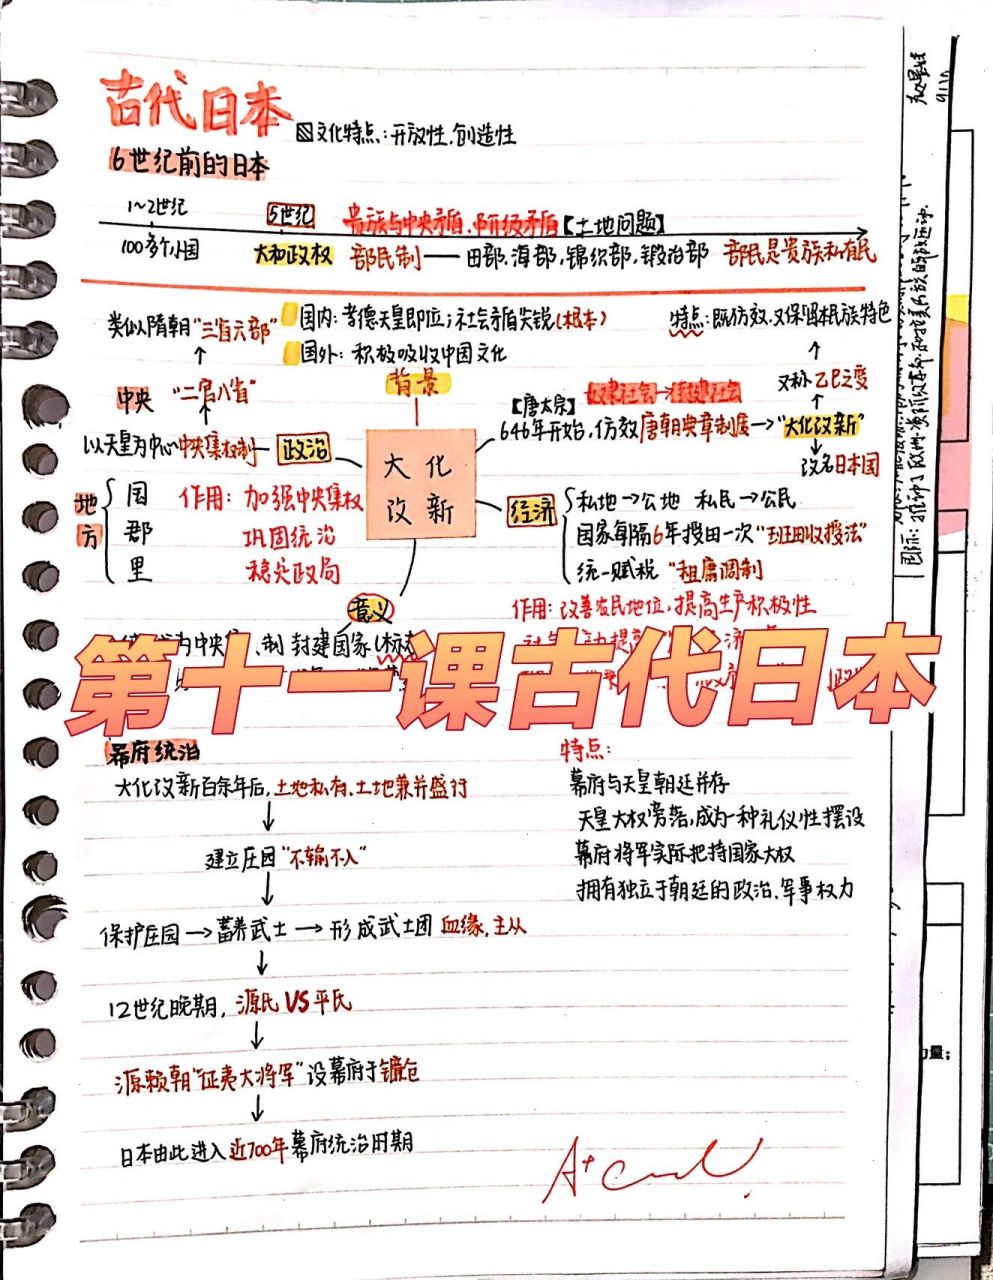 古代日本
文化特点:开放性.创造性
6世纪前的日本
1~2世纪
5世纪
贵族与中央矛盾.阶级矛盾【土地问题】
100多个小国
大和政权
部民制——田部,海部,锦织部,锻冶部
部民是贵族私有民
类似隋朝“三省六部”
国内:孝德天皇即位;社会矛盾尖锐(根本)
国外:积极吸收中国文化
特点:既仿效.又保留本民族特色
背景
中央
“二官八省”
又称乙巳之变
【唐太宗】
奴隶社会→封建社会
646年开始,仿效唐朝典章制度→“大化改新”
改名日本国
以天皇为中心中央集权制
政治
大化
改新
地方
国
郡
里
作用:加强中央集权
巩固统治
稳定政局
经济
私地→公地 私民→公民
国家每隔6年授田一次“班田收授法”
统一赋税“租庸调制”
意义
作用:改善农民地位,提高生产积极性
封建国家(标志
第十一课古代日本
幕府统治
大化改新百余年后,土地私有.土地兼并盛行
建立庄园“不输不入”
保护庄园→蓄养武士→形成武士团 血缘,主从
12世纪晚期,源氏VS平氏
源赖朝“征夷大将军”设幕府于镰仓
日本由此进入近700年幕府统治时期
特点:
幕府与天皇朝廷并存
天皇大权旁落,成为一种礼仪性摆设
幕府将军实际把持国家大权
拥有独立于朝廷的政治.军事权力
A+
力量;